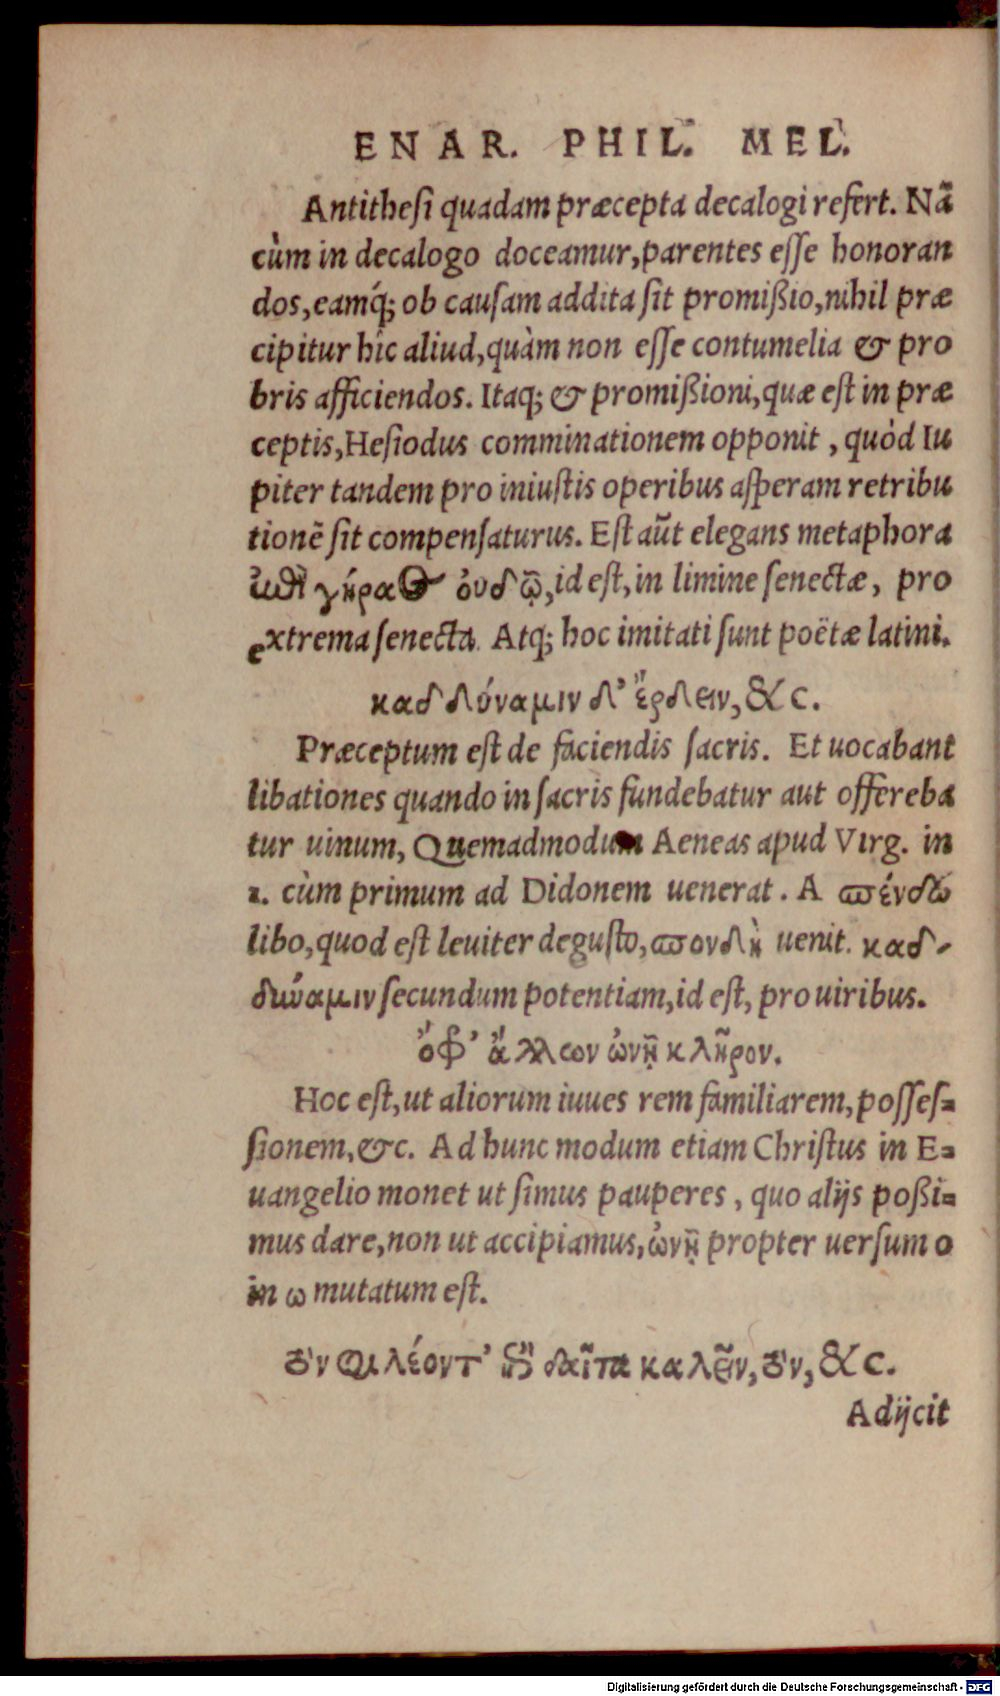 ENAR. PHIL. MEL.
Antithesi quadam præcepta decalogi refert. Nã
cùm in decalogo doceamur, parentes esse honoran
dos, eamq́; ob causam addita sit promißio, nihil præ
cipitur hîc aliud, quàm non esse contumelia & pro
bris afficiendos. Itaq; & promißioni, quæ est in præ
ceptis, Hesiodus comminationem opponit, quòd Iu
piter tandem pro iniustis operibus asperam retribu
tionẽ sit compensaturus. Est aũt elegans metaphora
ἐπὶ γήραος οὐδῷ, id est, in limine senectæ, pro
extrema senecta. Atq; hoc imitati sunt poëtæ latini.
καδδύναμιν δ' ἔρδειν, &c.
Præceptum est de faciendis sacris. Et uocabant
libationes quando in sacris fundebatur aut offereba
tur uinum, Quemadmodum Aeneas apud Virg. in
1. cùm primum ad Didonem uenerat. A σπένδω
libo, quod est leuiter degusto, σπονδὴ uenit. καδ-
δύναμιν secundum potentiam, id est, pro uiribus.
ὄφρ' ἄλλων ὠνῇ κλῆρον.
Hoc est, ut aliorum iuues rem familiarem, posses=
sionem, &c. Ad hunc modum etiam Christus in E=
uangelio monet ut simus pauperes, quo alijs poßi=
mus dare, non ut accipiamus, ὠνῇ propter uersum o
in ω mutatum est.
τὸν φιλέοντ' ἐπὶ δαῖτα καλεῖν, τὸν, &c.
Adijcit
Digitalisierung gefördert durch die Deutsche Forschungsgemeinschaft - DFG